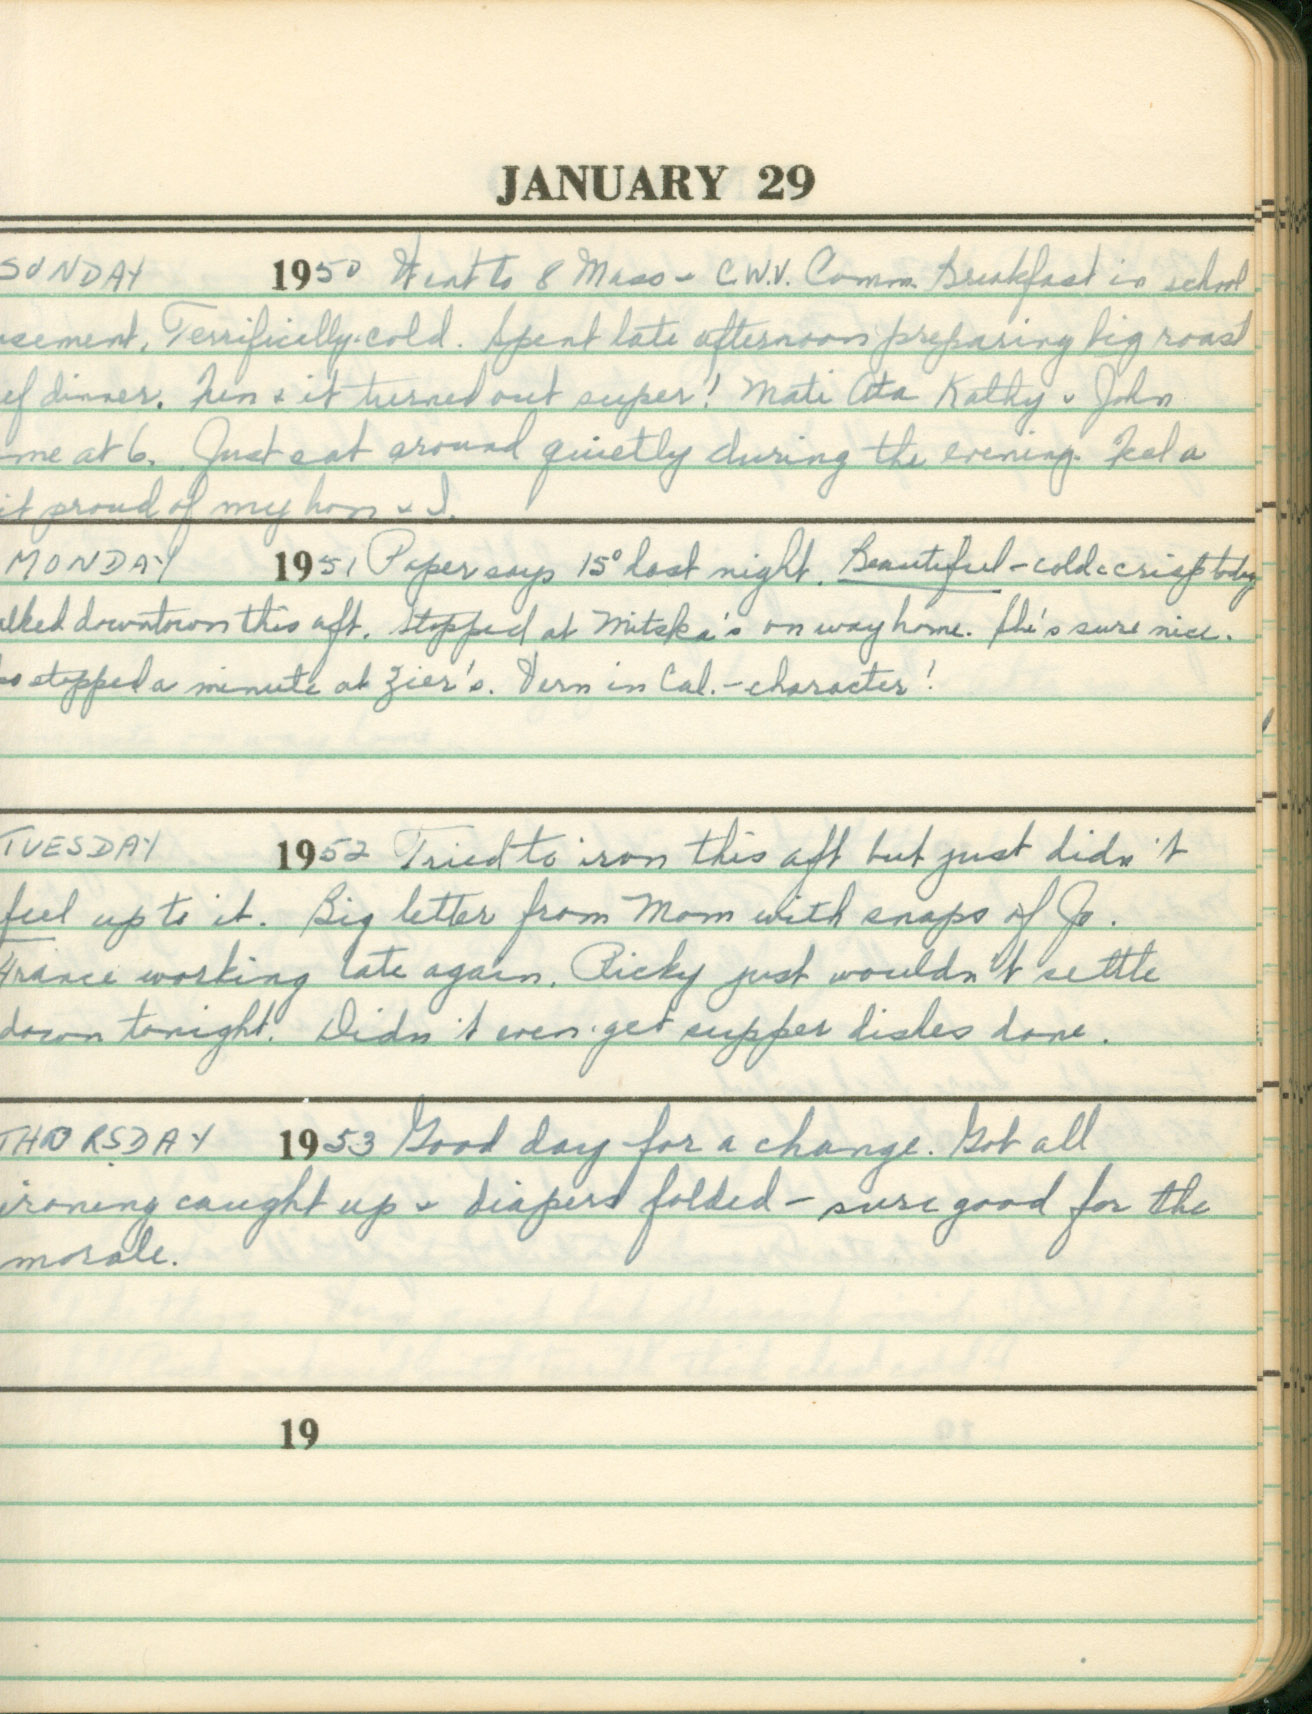 JANUARY 29
SUNDAY 1950 Went to 8 Mass - C.W.V. Comm. Breakfast in school
sement. Terrifically cold. Spent late afternoon preparing big roast
ef dinner. Fun & it turned out super! Mati Ata Kathy & John
me at 6. Just sat around quietly during the evening. Feel a
it proud of my hon & I.
MONDAY 1951 Paper says 15° last night. Beautiful - cold & crisp today
alked downtown this aft. Stopped at Mitska's on way home. She's sure nice.
so stopped a minute at Zier's. Vern in Cal. - character!
TUESDAY 1952 Tried to iron this aft but just didn't
feel up to it. Big letter from Mom with snaps of Jo.
France working late again. Ricky just wouldn't settle
down tonight. Didn't even get supper dishes done.
THURSDAY 1953 Good day for a change. Got all
ironing caught up & diapers folded - sure good for the
morale.
19